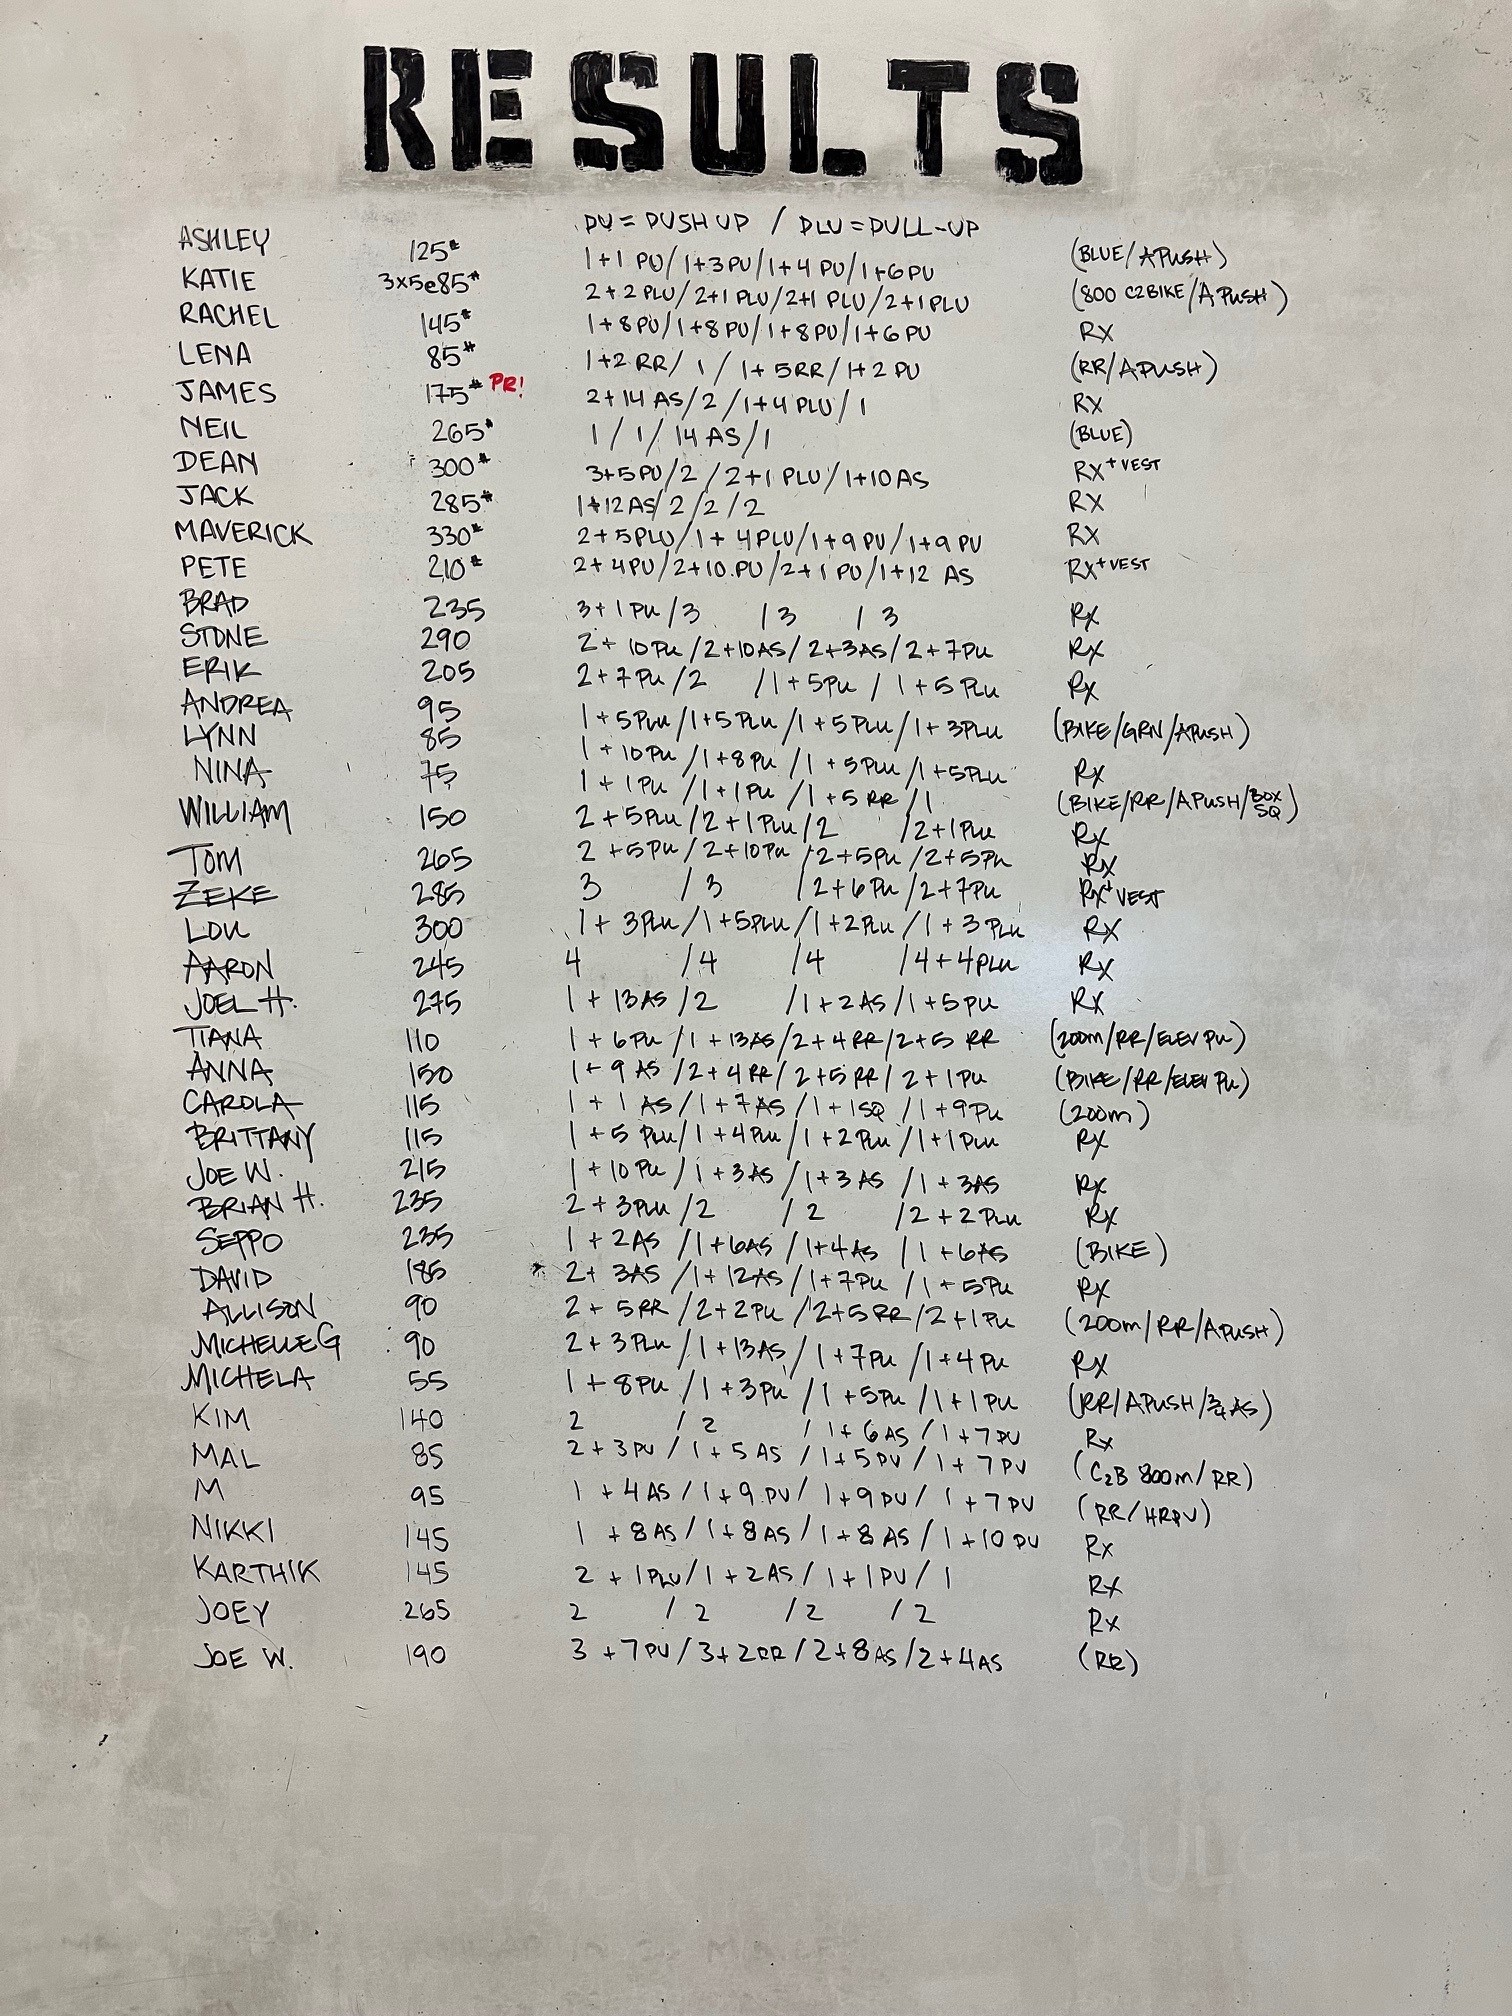 RESULTS
PU = PUSH UP / PLU = PULL-UP
ASHLEY 125# 1+1 PU/1+3PU/1+4 PU/1+6PU (BLUE/APUSH)
KATIE 3x5e85# 2+2PLU/2+1PLU/2+1 PLU/2+1PLU (800 C2BIKE/APUSH)
RACHEL 145# 1+8PU/1+8PU/1+8PU/1+6PU RX
LENA 85# 1+2 RR/ 1 / 1+5RR/1+2 PU (RR/APUSH)
JAMES 175# PR! 2+14 AS/2/1+4 PLU/1 RX
NEIL 265# 1/1/14 AS/1 (BLUE)
DEAN 300# 3+5PU/2/2+1 PLU/1+10AS RX+VEST
JACK 285# 1+12AS/2/2/2 RX
MAVERICK 330# 2+5PLU/1+4PLU/1+9PU/1+9PU RX
PETE 210# 2+4PU/2+10 PU/2+1PU/1+12 AS RX+VEST
BRAD 235 3+1PU/3 /3 /3 RX
STONE 290 2+10PU/2+10AS/2+3AS/2+7PU RX
ERIK 205 2+7PU/2 /1+5PU/1+5PLU RX
ANDREA 95 1+5PLU/1+5PLU/1+5PLU/1+3PLU (BIKE/GRN/APUSH)
LYNN 85 1+10PU/1+8PU/1+5PLU/1+5PLU RX
NINA 75 1+1PU/1+1PU/1+5RR/1 (BIKE/RR/APUSH/BOX SQ)
WILLIAM 150 2+5PLU/2+1PLU/2 /2+1PLU RX
TOM 265 2+5PU/2+10PU/2+5PU/2+5PU RX
ZEKE 285 3 /3 /2+6PU/2+7PU RX+VEST
LOU 300 1+3PLU/1+5PLU/1+2PLU/1+3PLU RX
AARON 245 4 /4 /4 /4+4PLU RX
JOEL H. 275 1+13AS/2 /1+2AS/1+5PU RX
TIANA 110 1+6PU/1+13AS/2+4RR/2+5 RR (200m/RR/ELEV PU)
ANNA 150 1+9 AS/2+4RR/2+5RR/2+1PU (BIKE/RR/ELEV PU)
CAROLA 115 1+1 AS/1+7AS/1+1SQ/1+9PU (200m)
BRITTANY 115 1+5 PLU/1+4PLU/1+2PLU/1+1PLU RX
JOE W. 215 1+10PU/1+3AS/1+3AS/1+3AS RX
BRIAN H. 235 2+3PLU/2 /2 /2+2PLU RX
SEPPO 235 1+2AS/1+6AS/1+4AS/1+6AS (BIKE)
DAVID 185 2+3AS/1+12AS/1+7PU/1+5PU RX
ALLISON 90 2+5RR/2+2PU/2+5RR/2+1PU (200m/RR/APUSH)
MICHELLE G 90 2+3PLU/1+13AS/1+7PU/1+4PU RX
MICHELA 55 1+8PU/1+3PU/1+5PU/1+1PU (RR/APUSH/3/4 AS)
KIM 140 2 /2 /1+6AS/1+7PU RX
MAL 85 2+3PU/1+5AS/1+5PU/1+7PU (C2B 800m/RR)
M 95 1+4AS/1+9PU/1+9PU/1+7PU (RR/HRPU)
NIKKI 145 1+8AS/1+8AS/1+8AS/1+10PU RX
KARTHIK 145 2+1PLU/1+2AS/1+1PU/1 RX
JOEY 265 2 /2 /2 /2 RX
JOE W. 190 3+7PU/3+2RR/2+8AS/2+4AS (RR)
JACK